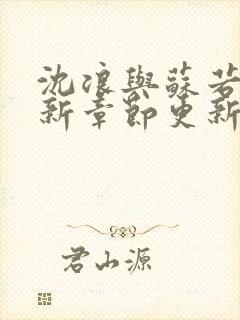 沈浪與蘇若
新章節更新
君山源